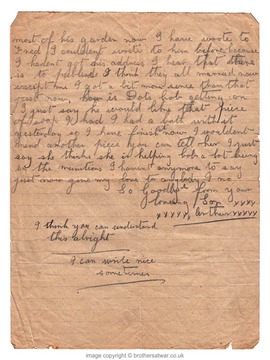 most of his garden now I have wrote to
Fred I couldent wrote to him before because
I hadent got his address I hear that there
is to I think they all married now
except me I got a bit more sense than that
just now how is Dots Job getting on
I just say she would like that piece
of soap I had I had a bath without
yesterday so I have finish now I wouldent
mend another piece you can tell her I just
say she thinks she is helping bob a lot being
on the munitions I havent anymore to say
just now give my love to anybody I no
So Goodbye from your
loveing Son
xxxx Arthur xxxx
I think you can understand
this alright
I can write nice
sometimes
image copyright © brothersatwar.co.uk